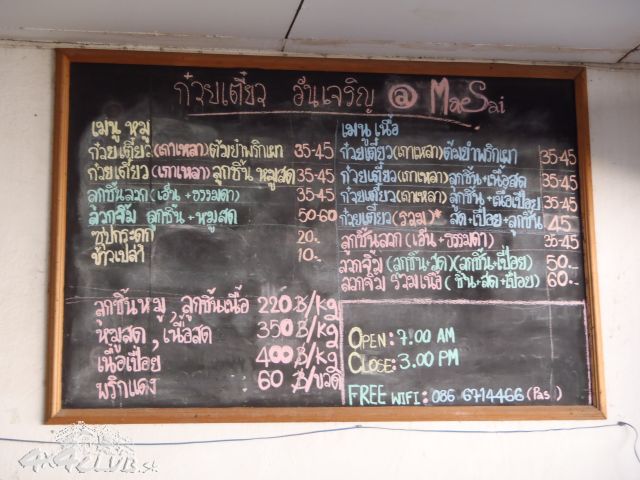 ก๋วยเตี๋ยว วันเจริญ @ MaeSai
เมนู หมู
ก๋วยเตี๋ยว(เกาเหลา)ต้มยำพริกเผา 35-45
ก๋วยเตี๋ยว(เกาเหลา) ลูกชิ้น หมูสด 35-45
ลูกชิ้นลวก(เอ็น+ธรรมดา) 35-45
ลวกจิ้ม ลูกชิ้น+หมูสด 50-60
ซุปกระดูก 20.-
ข้าวเปล่า 10.-
เมนู เนื้อ
ก๋วยเตี๋ยว(เกาเหลา)ต้มยำพริกเผา 35-45
ก๋วยเตี๋ยว(เกาเหลา)ลูกชิ้น+เนื้อสด 35-45
ก๋วยเตี๋ยว(เกาเหลา)ลูกชิ้น+เนื้อเปื่อย 35-45
ก๋วยเตี๋ยว(รวม)* สด+เปื่อย+ลูกชิ้น 45
ลูกชิ้นลวก(เอ็น+ธรรมดา) 35-45
ลวกจิ้ม (ลูกชิ้น+สด)(ลูกชิ้น+เปื่อย) 50.-
ลวกจิ้ม รวมเนื้อ(ชิ้น+สด+เปื่อย) 60.-
ลูกชิ้นหมู, ลูกชิ้นเนื้อ 220 B/kg
หมูสด, เนื้อสด 350 B/kg
เนื้อเปื่อย 400 B/kg
พริกแดง : 60 B/ขวด
OPEN: 7.00 AM
CLOSE: 3.00 PM
FREE WIFI: 086 6714466 (Pas)
4x4CLUB.sk